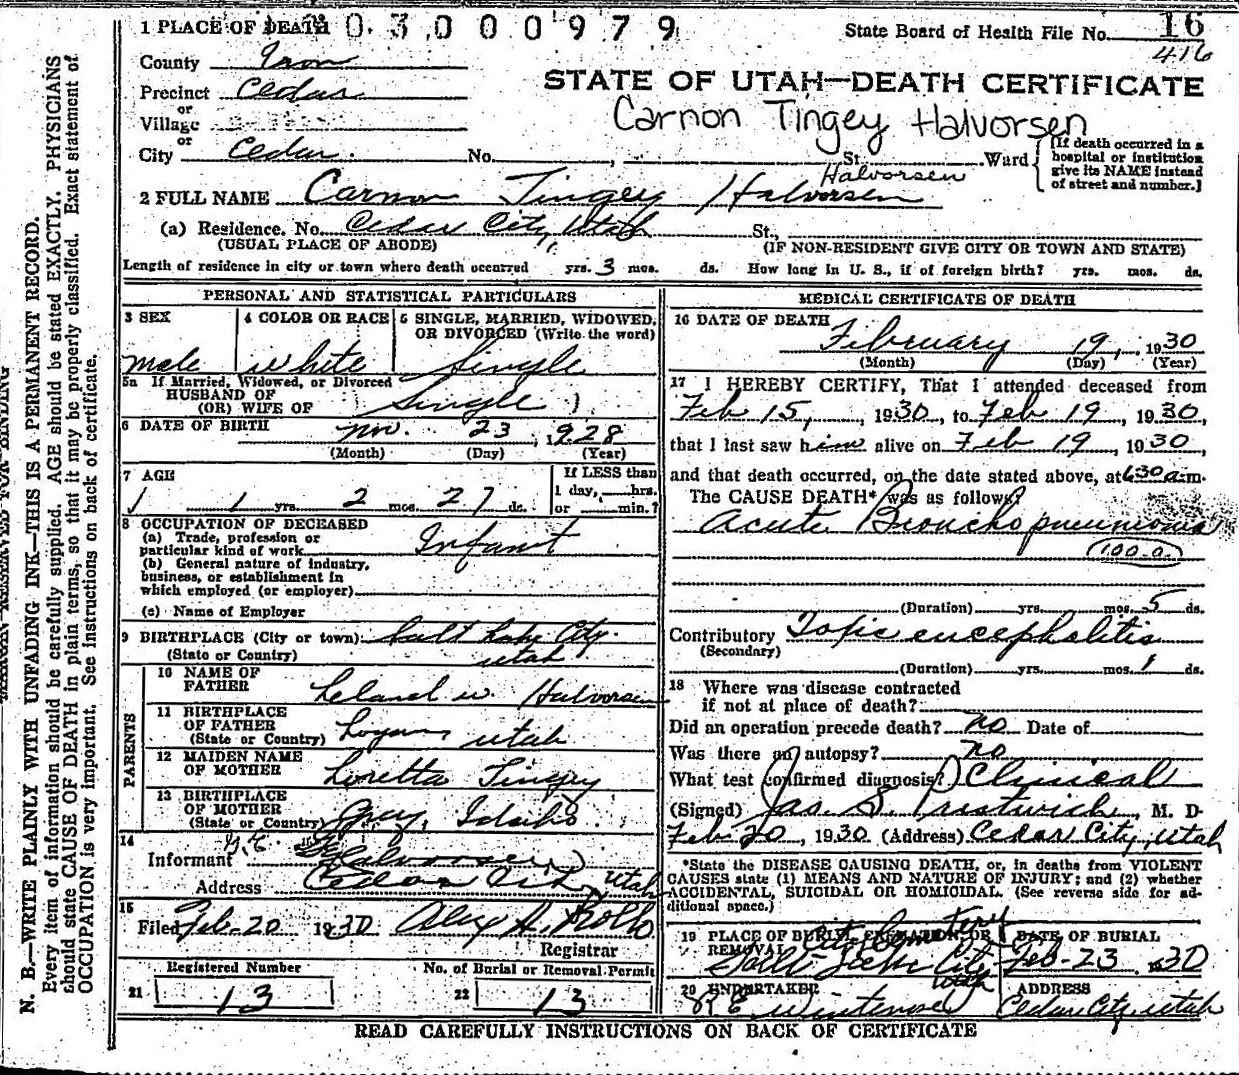 1 PLACE OF DEATH 0 3 0 0 0 9 7 9
State Board of Health File No. 16
416
County Iron
Precinct Cedar
or
Village
or
City Cedar. No. , St. Ward
STATE OF UTAH—DEATH CERTIFICATE
Carnon Tingey Halvorsen
[If death occurred in a
hospital or institution
give its NAME instead
of street and number.]
Halvorsen
2 FULL NAME Carnon Tingey Halvorsen
(a) Residence. No. Cedar City, Utah St.,
(USUAL PLACE OF ABODE) (IF NON-RESIDENT GIVE CITY OR TOWN AND STATE)
Length of residence in city or town where death occurred yrs. 3 mos. ds. How long in U. S., if of foreign birth? yrs. mos. ds.
PERSONAL AND STATISTICAL PARTICULARS
3 SEX
male
4 COLOR OR RACE
white
5 SINGLE, MARRIED, WIDOWED,
OR DIVORCED (Write the word)
Single
5a If Married, Widowed, or Divorced
HUSBAND OF
(OR) WIFE OF (Single)
6 DATE OF BIRTH Nov. 23, 1928
(Month) (Day) (Year)
7 AGE
1 1 yrs. 2 mos. 27 ds.
If LESS than
1 day, hrs.
or min.?
8 OCCUPATION OF DECEASED
(a) Trade, profession or
particular kind of work Infant
(b) General nature of industry,
business, or establishment in
which employed (or employer)
(c) Name of Employer
9 BIRTHPLACE (City or town) Salt Lake City.
(State or Country) Utah
PARENTS
10 NAME OF
FATHER Leland W. Halvorsen
11 BIRTHPLACE
OF FATHER
(State or Country) Logan Utah
12 MAIDEN NAME
OF MOTHER Loretta Tingey
13 BIRTHPLACE
OF MOTHER
(State or Country) Grey, Idaho.
14
Informant Halvorsen
Address Cedar City, Utah
15
Filed Feb-20 1930 Alex H. Rollo
Registrar
Registered Number
21 13
No. of Burial or Removal Permit
22 13
MEDICAL CERTIFICATE OF DEATH
16 DATE OF DEATH
February 19, 1930
(Month) (Day) (Year)
17 I HEREBY CERTIFY, That I attended deceased from
Feb 15, 1930, to Feb 19, 1930,
that I last saw him alive on Feb 19, 1930,
and that death occurred, on the date stated above, at 6:30 a.m.
The CAUSE DEATH* was as follows?
Acute Bronchopneumonia
(100-a.)
(Duration) yrs. mos. 5 ds.
Contributory Toxic encephalitis
(Secondary)
(Duration) yrs. mos. 1 ds.
18 Where was disease contracted
if not at place of death?
Did an operation precede death? no Date of
Was there an autopsy? no
What test confirmed diagnosis? Clinical
(Signed) Jas. S. Prestwich, M. D.
Feb 20, 1930 (Address) Cedar City, Utah
*State the DISEASE CAUSING DEATH, or, in deaths from VIOLENT
CAUSES state (1) MEANS AND NATURE OF INJURY; and (2) whether
ACCIDENTAL, SUICIDAL OR HOMICIDAL. (See reverse side for ad-
ditional space.)
19 PLACE OF BURIAL, CREMATION OR
REMOVAL City Cemetery
Salt Lake City
Utah
DATE OF BURIAL
Feb-23 1930
20 UNDERTAKER
ADDRESS
Cedar City, Utah
READ CAREFULLY INSTRUCTIONS ON BACK OF CERTIFICATE
MARGIN RESERVED FOR BINDING
N. B.—WRITE PLAINLY WITH UNFADING INK—THIS IS A PERMANENT RECORD.
Every item of information should be carefully supplied. AGE should be stated EXACTLY. PHYSICIANS
should state CAUSE OF DEATH in plain terms, so that it may be properly classified. Exact statement of
OCCUPATION is very important. See instructions on back of certificate.